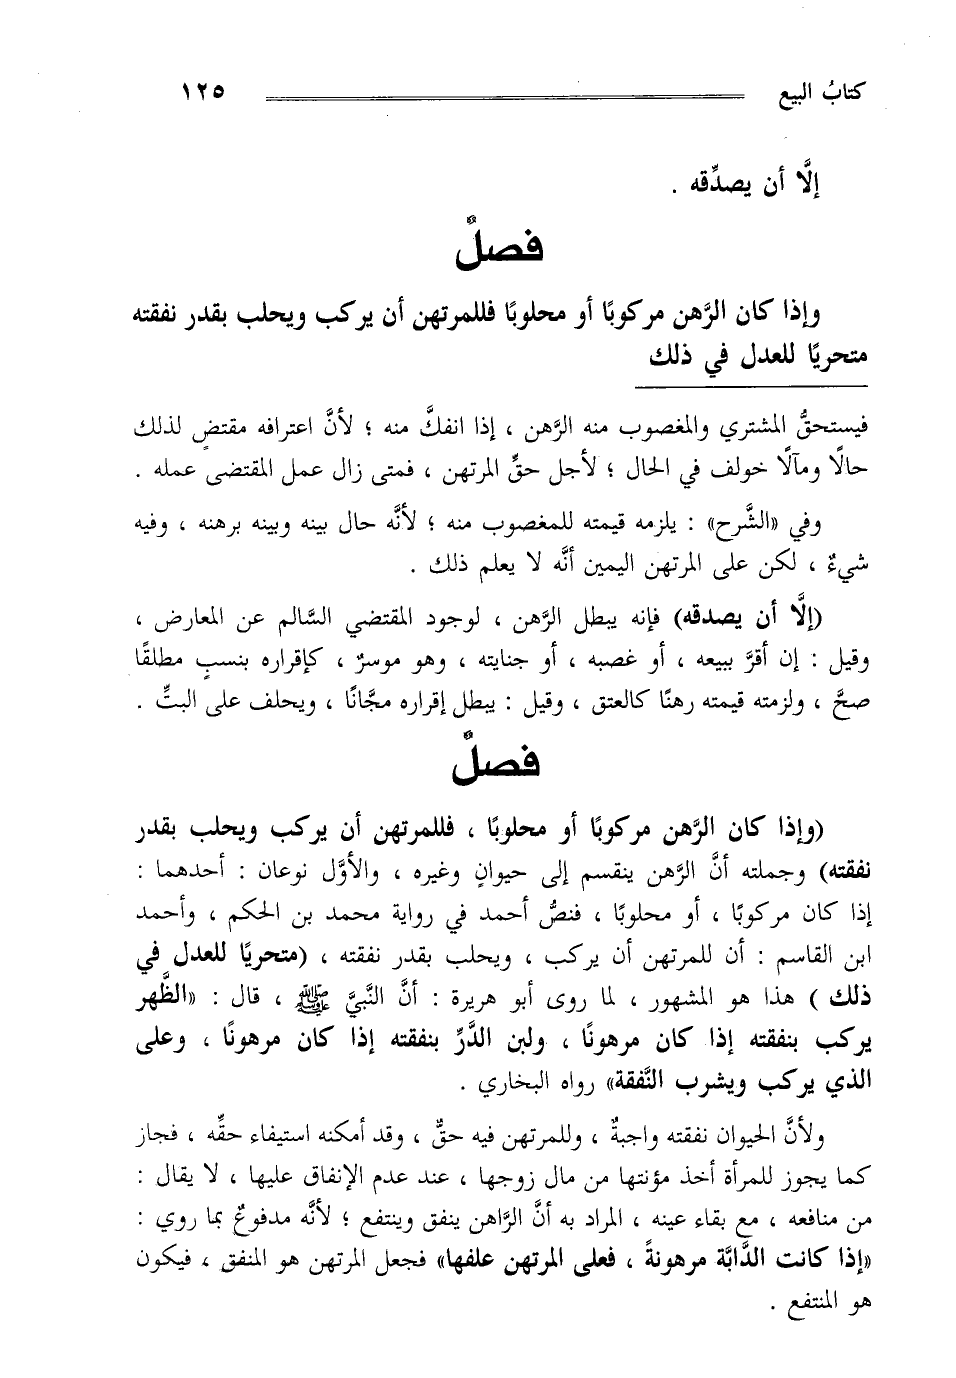 كتابُ البيع ١٢٥
إلَّا أن يصدِّقه .
فصلٌ
وإذا كان الرَّهن مركوبًا أو محلوبًا فللمرتهن أن يركب ويحلب بقدر نفقته
متحريًا للعدل في ذلك
فيستحقُّ المشتري والمغصوب منه الرَّهن ، إذا انفكَّ منه ؛ لأنَّ اعترافه مقتضٍ لذلك
حالًا ومآلًا خولف في الحال ؛ لأجل حقِّ المرتهن ، فمتى زال عمل المقتضى عمله .
وفي «الشَّرح» : يلزمه قيمته للمغصوب منه ؛ لأنَّه حال بينه وبينه برهنه ، وفيه
شيءٌ ، لكن على المرتهن اليمين أنَّه لا يعلم ذلك .
(إلَّا أن يصدقه) فإنه يبطل الرَّهن ، لوجود المقتضي السَّالم عن المعارض ،
وقيل : إن أقرَّ ببيعه ، أو غصبه ، أو جنايته ، وهو موسرٌ ، كإقراره بنسبٍ مطلقًا
صحَّ ، ولزمته قيمته رهنًا كالعتق ، وقيل : يبطل إقراره مجَّانًا ، ويحلف على البتِّ .
فصلٌ
(وإذا كان الرَّهن مركوبًا أو محلوبًا ، فللمرتهن أن يركب ويحلب بقدر
نفقته) وجملته أنَّ الرَّهن ينقسم إلى حيوانٍ وغيره ، والأوَّل نوعان : أحدهما :
إذا كان مركوبًا ، أو محلوبًا ، فنصُّ أحمد في رواية محمد بن الحكم ، وأحمد
ابن القاسم : أن للمرتهن أن يركب ، ويحلب بقدر نفقته ، (متحريًا للعدل في
ذلك ) هذا هو المشهور ، لما روى أبو هريرة : أنَّ النَّبيَّ ﷺ ، قال : «الظَّهر
يركب بنفقته إذا كان مرهونًا ، ولبن الدَّرِّ بنفقته إذا كان مرهونًا ، وعلى
الذي يركب ويشرب النَّفقة» رواه البخاري .
ولأنَّ الحيوان نفقته واجبةٌ ، وللمرتهن فيه حقٌّ ، وقد أمكنه استيفاء حقِّه ، فجاز
كما يجوز للمرأة أخذ مؤنتها من مال زوجها ، عند عدم الإنفاق عليها ، لا يقال :
من منافعه ، مع بقاء عينه ، المراد به أنَّ الرَّاهن ينفق وينتفع ؛ لأنَّه مدفوعٌ بما روي :
«إذا كانت الدَّابَّة مرهونةً ، فعلى المرتهن علفها» فجعل المرتهن هو المنفق ، فيكون
هو المنتفع .